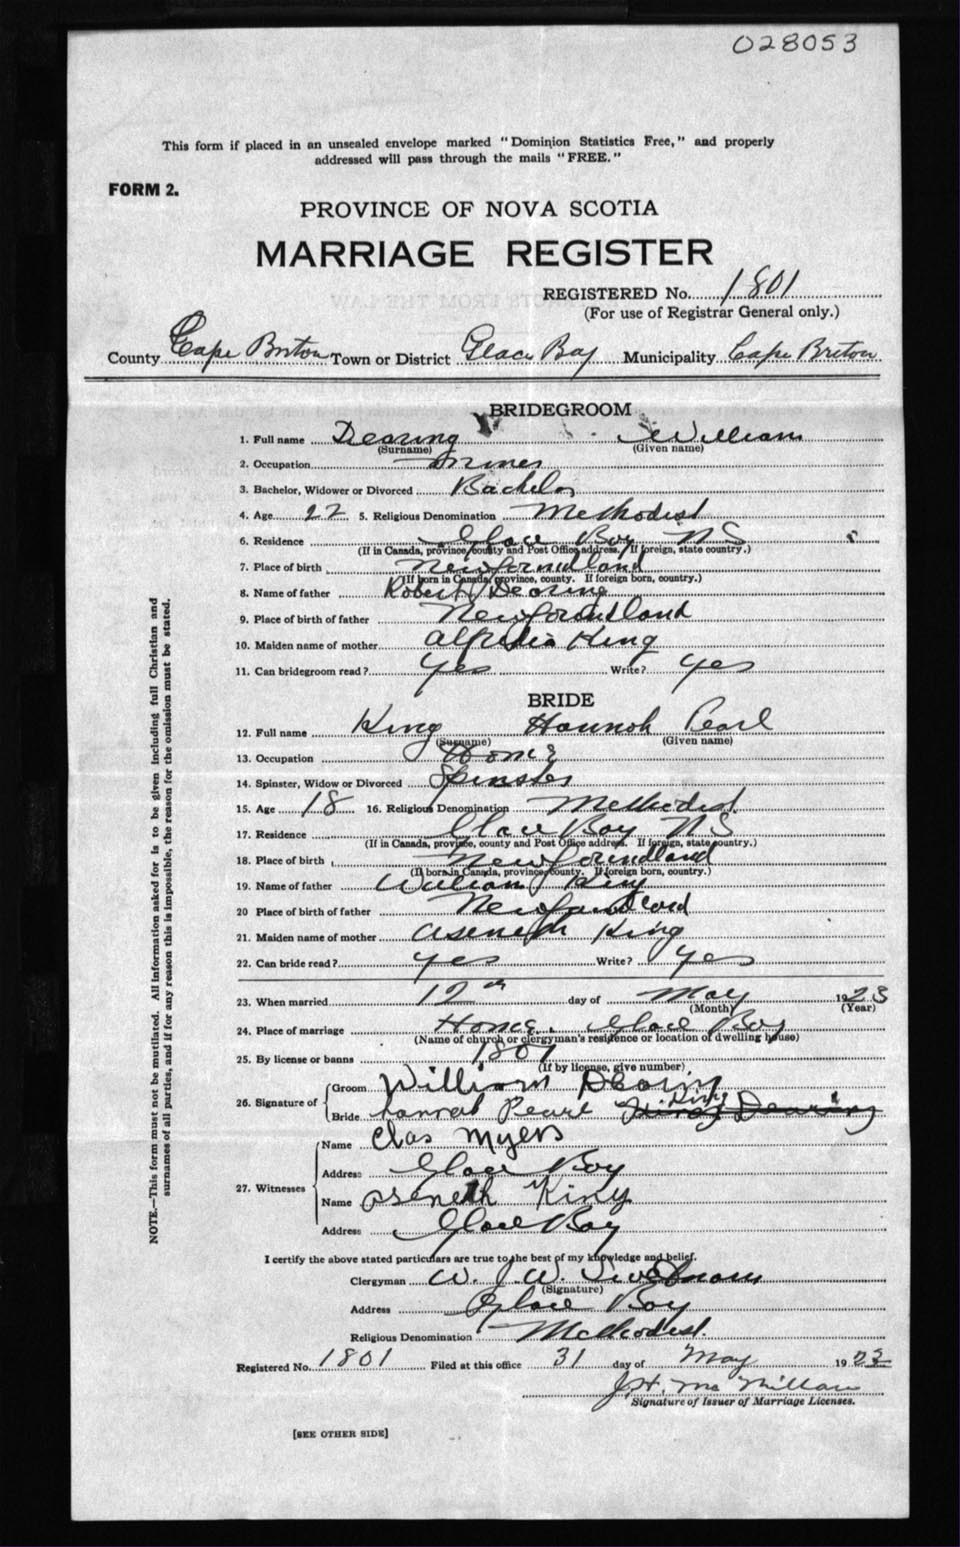 028053
This form if placed in an unsealed envelope marked "Dominion Statistics Free," and properly
addressed will pass through the mails "FREE."
FORM 2.
PROVINCE OF NOVA SCOTIA
MARRIAGE REGISTER
REGISTERED No. 1801
(For use of Registrar General only.)
County Cape Breton Town or District Glace Bay Municipality Cape Breton
BRIDEGROOM
1. Full name Dearing William
(Surname) (Given name)
2. Occupation Miner
3. Bachelor, Widower or Divorced Bachelor
4. Age 22 5. Religious Denomination Methodist
6. Residence Glace Bay NS
(If in Canada, province, county and Post Office address. If foreign, state country.)
7. Place of birth Newfoundland
(If born in Canada, province, county. If foreign born, country.)
8. Name of father Robert Dearing
9. Place of birth of father Newfoundland
10. Maiden name of mother King
11. Can bridegroom read? yes Write? yes
BRIDE
12. Full name King Hannah Pearl
(Surname) (Given name)
13. Occupation Home
14. Spinster, Widow or Divorced Spinster
15. Age 18 16. Religious Denomination Methodist
17. Residence Glace Bay NS
(If in Canada, province, county and Post Office address. If foreign, state country.)
18. Place of birth Newfoundland
(If born in Canada, province, county. If foreign born, country.)
19. Name of father William King
20 Place of birth of father Newfoundland
21. Maiden name of mother Aseneth King
22. Can bride read? yes Write? yes
23. When married 12th day of May 1923
(Month) (Year)
24. Place of marriage Home, Glace Bay
(Name of church or clergyman's residence or location of dwelling house)
25. By license or banns 1801
(If by license, give number)
26. Signature of
Groom William Dearing
Bride Hannah Pearl King Dearing
King
27. Witnesses
Name Clas Myers
Address Glace Bay
Name Aseneth King
Address Glace Bay
I certify the above stated particulars are true to the best of my knowledge and belief.
Clergyman W. J. W.
(Signature)
Address Glace Bay
Religious Denomination Methodist.
Registered No. 1801 Filed at this office 31 day of May 1923
J. H. McMillan
Signature of Issuer of Marriage Licenses.
[SEE OTHER SIDE]
NOTE.—This form must not be mutilated. All information asked for is to be given including full Christian and
surnames of all parties, and if for any reason this is impossible, the reason for the omission must be stated.